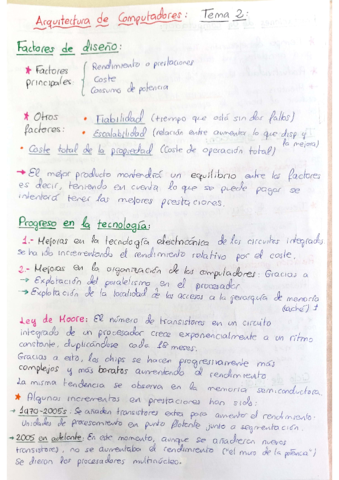 Arquitectura de Computadores: Tema 2:
Factores de diseño:
* Factores principales:
Rendimiento o prestaciones
Coste
Consumo de potencia
* Otros factores:
• Fiabilidad (tiempo que está sin dar fallos)
• Escalabilidad (relación entre aumentar lo que disp y la mejora)
• Coste total de la propiedad (Coste de operación total)
→ El mejor producto mantendrá un equilibrio entre los factores
es decir, teniendo en cuenta lo que se puede pagar se
intentará tener las mejores prestaciones.
Progreso en la tecnología:
1.- Mejoras en la tecnología electrónica de los circuitos integrados
se ha ido incrementando el rendimiento relativo por el coste.
2.- Mejoras en la organización de los computadores: Gracias a
→ Explotación del paralelismo en el procesador
→ Explotación de la localidad de los accesos a la jerarquía de memoria
(caché)
Ley de Moore: El número de transistores en un circuito
integrado de un procesador crece exponencialmente a un ritmo
constante, duplicándose cada 18 meses.
Gracias a esto, los chips se hacen progresivamente más
complejos y más baratos aumentando el rendimiento
La misma tendencia se observa en la memoria semiconductora.
* Algunos incrementos en prestaciones han sido:
→ 1970-2005s: Se añaden transistores extra para aumentar el rendimiento:
unidades de procesamiento en punto flotante junto a segmentación.
→ 2005 en adelante: En este momento, aunque se añadieran nuevos
transistores, no se aumentaba el rendimiento ("el muro de la potencia")
se dieron los procesadores multinúcleo.